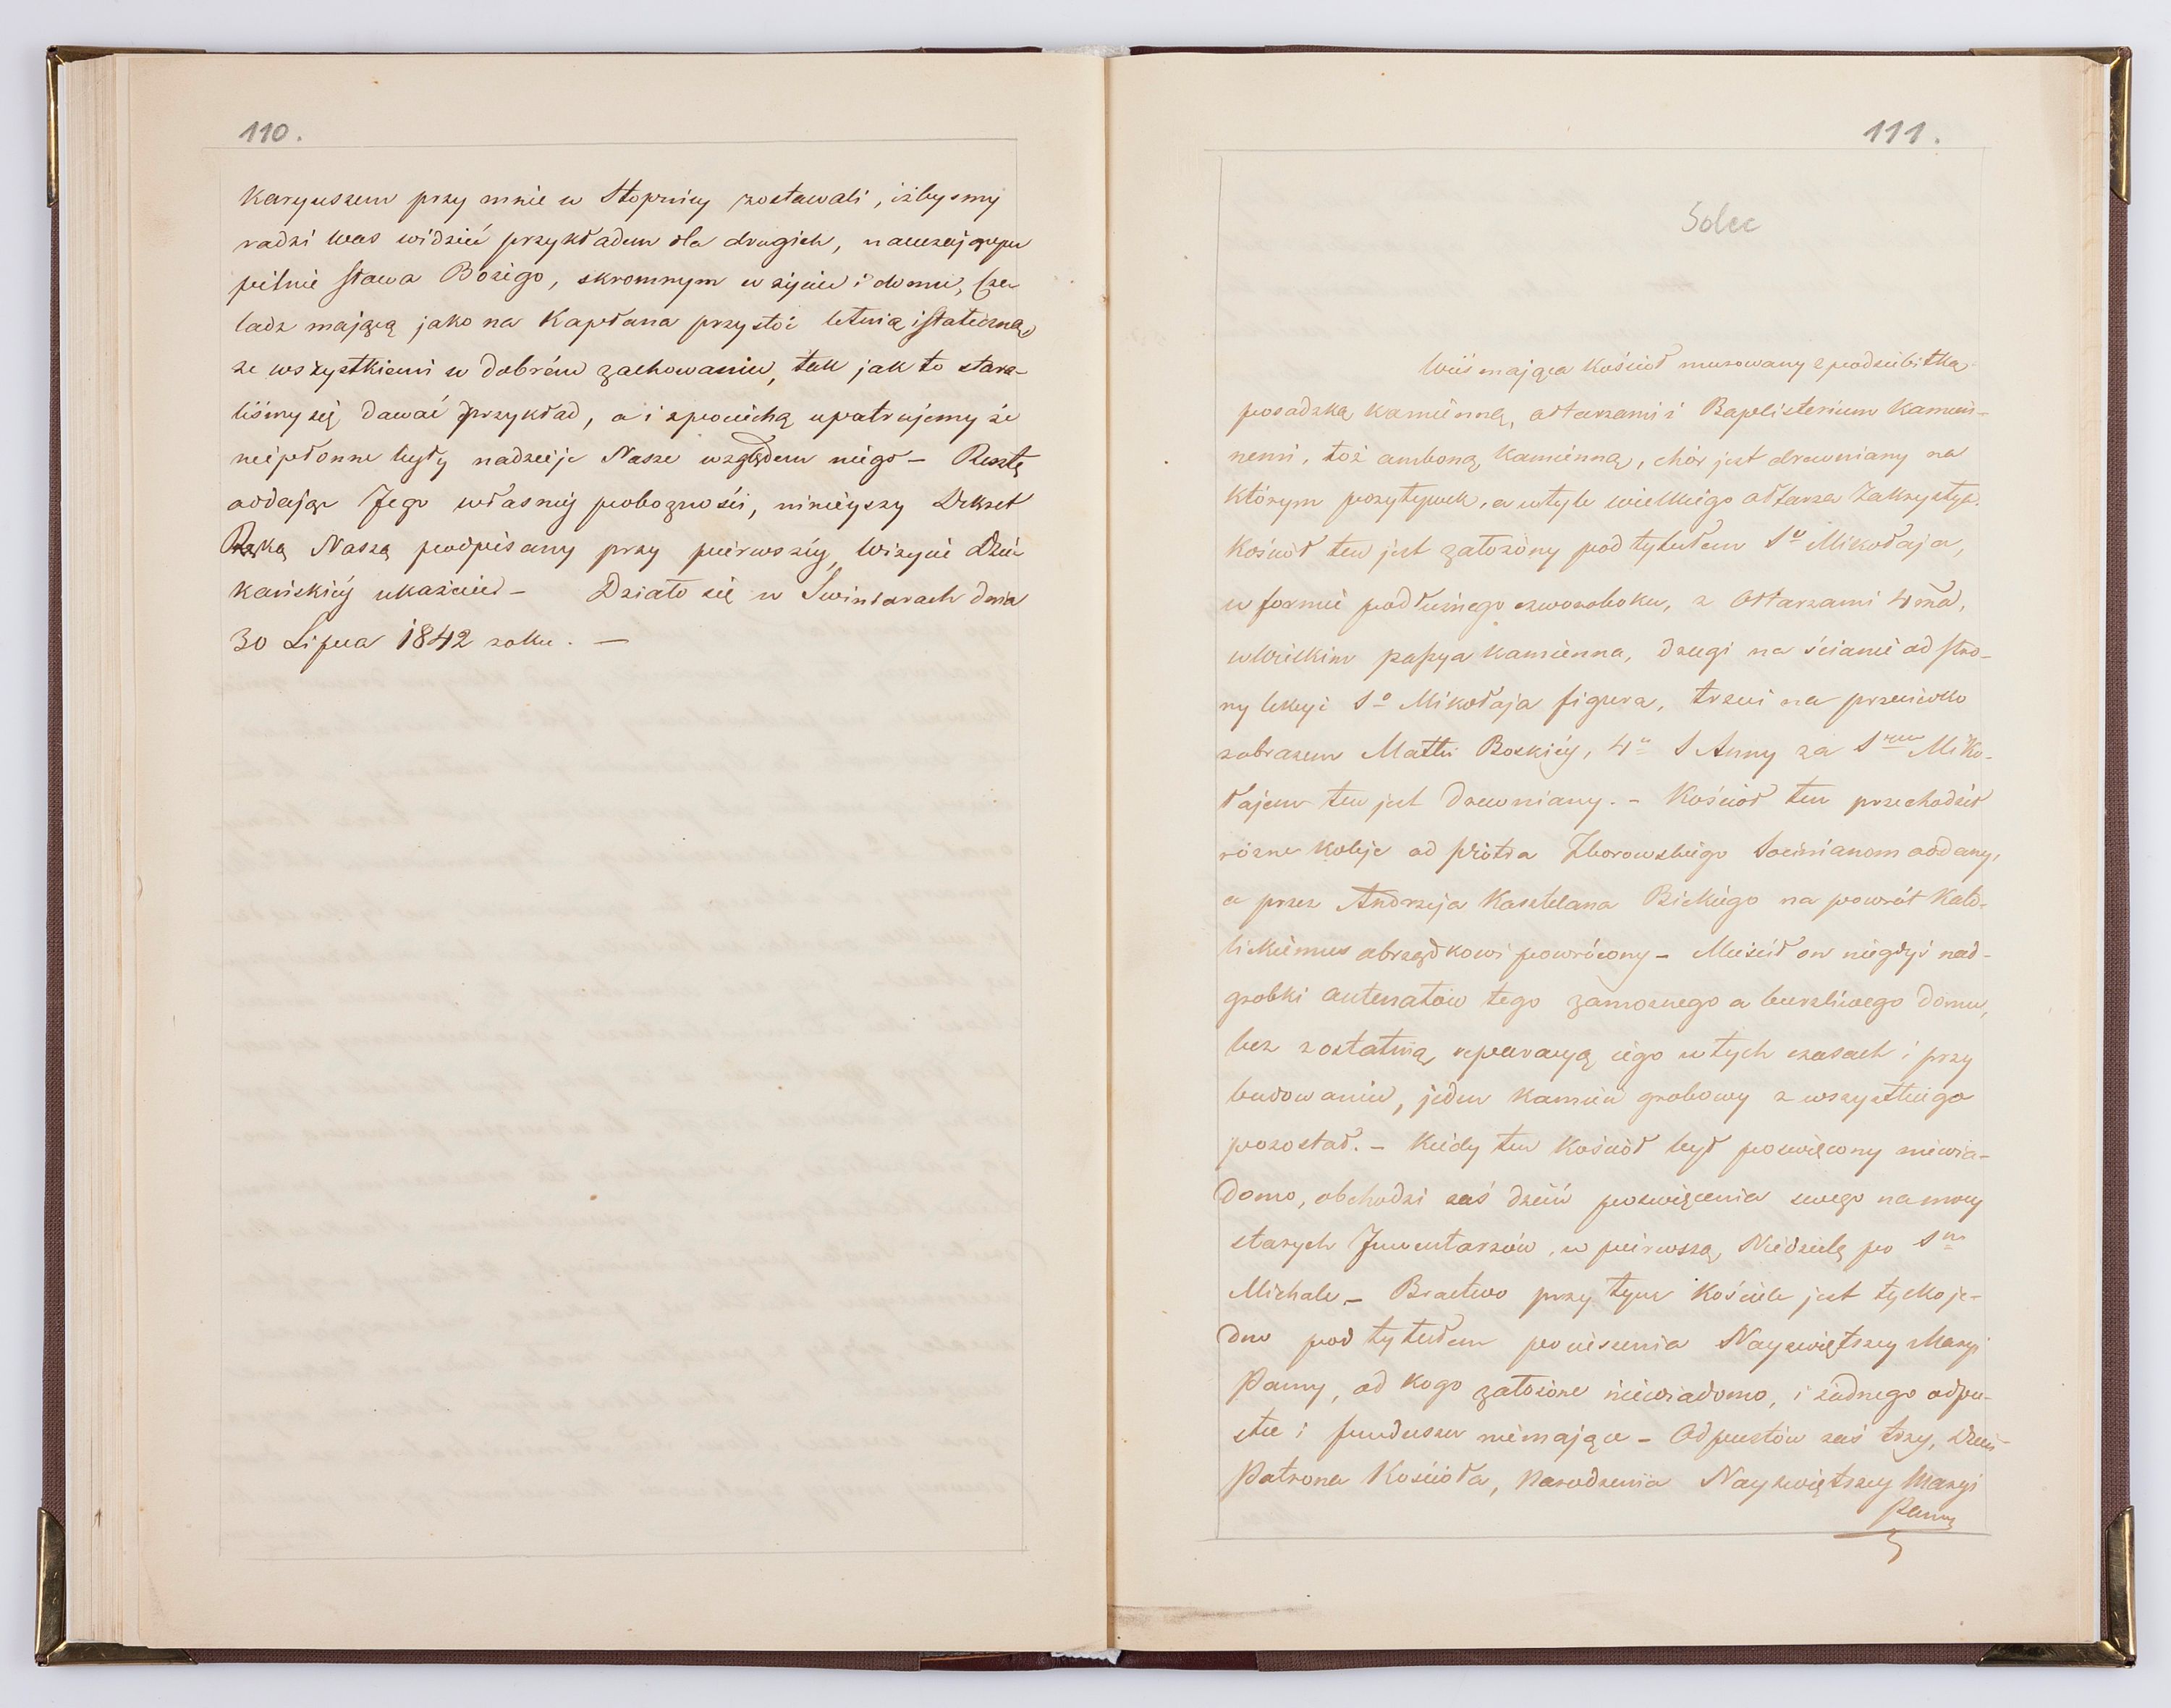 110.
Karyuszem przy mnie w Stopnicy zostawali, iżbyśmy
radzi Was widzieć przykładem dla drugich, nauczającym
pilnie słowa Bożego, skromnym w życiu i domu, cze-
ladz mającą jako na Kapłana przystoi letnią i stateczną,
ze wszystkiemi w dobrém zachowaniu, tak jak to stara-
liśmy się dawać przykład, a i z pociechą upatrujemy że
niepłonne były nadzieje Nasze względem niego – Resztę
oddając Jego własnéj pobożności, niniéyszy Dekret
Ręką Naszą podpisany przy pierwszéy Wizycie Dzie-
kańskiéy ukaźcied – Działo się w Świniarach dnia
30 Lipca 1842 roku. —
111.
Solec
Wieś mająca Kościoł murowany z podsiebitką
posadzką kamienną, ołtarzami i Baptisterium Kamien-
nemi, toż amboną kamienną, chór jest drewniany na
którym pozytywek, a w tyle wielkiego ołtarza Zakrystya.
Kościoł ten jest założony pod tytułem So Mikołaja,
w formie podłużnego czworoboku, z Ołtarzami 4ma,
w Wielkim passya kamienna, drugi na ścianie od stro-
ny lekcyi So Mikołaja figura, trzeci na przeciwko
z obrazem Matki Boskiéy, 4y S Anny za Sym Miko-
łajem ten jest drewniany. – Kościoł ten przechodził
różne koleje od Piotra Zborowskiego Socinianom oddany,
a przez Andrzeja Kasztelana Bieckiego na powrót Kato-
lickiemu obrządkowi powrócony – Mieścił on niegdyś nad-
grobki antenatów tego zamożnego a burzliwego domu,
lecz z ostatnią reparacyą iego w tych czasach i przy
budowaniu, jeden kamień grobowy z wszystkiego
pozostał. – Kiedy ten Kościoł był poświęcony niewia-
domo, obchodzi zaś dzień poświęcenia swego na mocy
starych Inwentarzów, w pierwszą Niedzielę po Sm
Michale – Bractwo przy tym Kościele jest tylko je-
dno pod tytułem pocieszenia Nayświętszey Maryi
Panny, od kogo założone niewiadomo, i żadnego odpu-
stu i funduszu niemające – Odpustów zaś trzy, Dzień
Patrona Kościoła, Narodzenia Nayświętszey Maryi
Panny